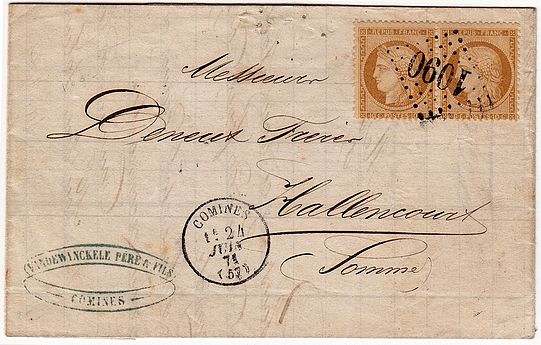 REPUB. FRANC. REPUB. FRANC.
10 C. POSTES 10 C. POSTES
1090
Messieurs
Deneux Frères
Hallencourt
(Somme)
COMINES
24
JUIN
71
(57)
VANDEWINCKELE PÈRE & FILS
COMINES